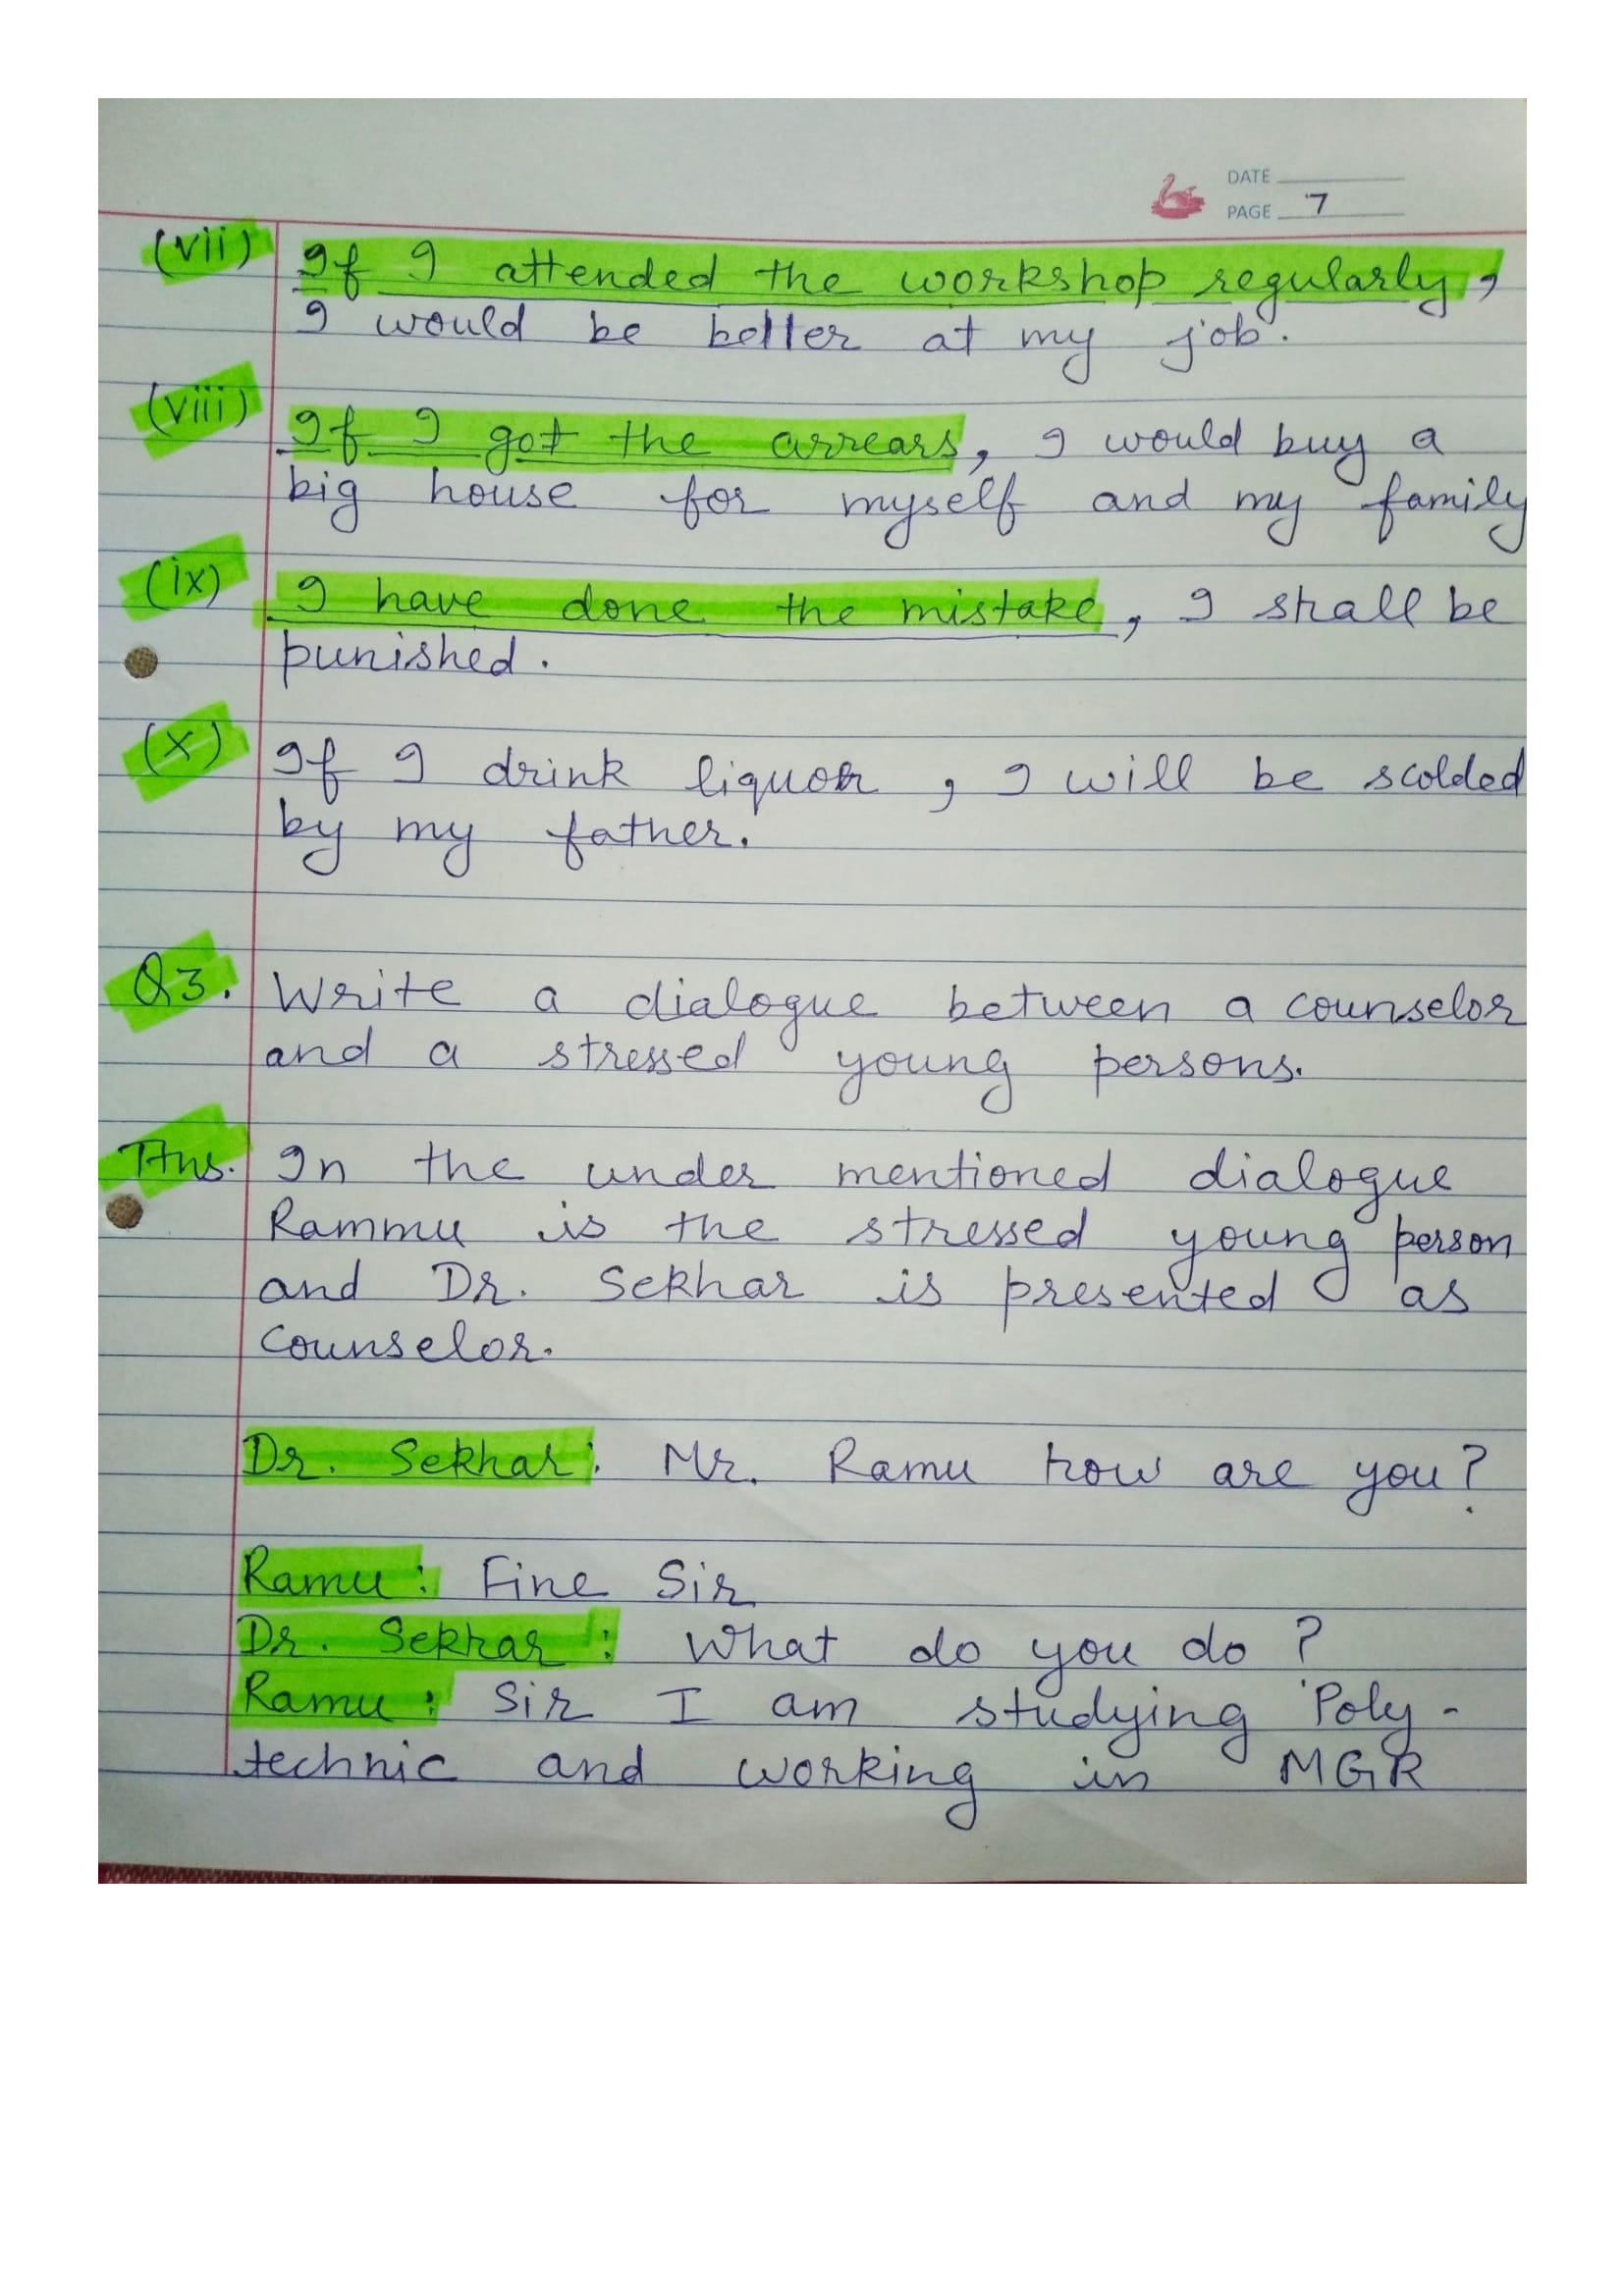 DATE
PAGE 7
(vii) If I attended the workshop regularly,
I would be better at my job.
(viii) If I got the arrears, I would buy a
big house for myself and my family
(ix) I have done the mistake, I shall be
punished.
(x) If I drink liquor, I will be scolded
by my father.
Q3. Write a dialogue between a counselor
and a stressed young persons.
Ans. In the under mentioned dialogue
Rammu is the stressed young person
and Dr. Sekhar is presented as
counselor.
Dr. Sekhar: Mr. Ramu how are you?
Ramu: Fine Sir
Dr. Sekhar: What do you do?
Ramu: Sir I am studying Poly-
technic and working in MGR